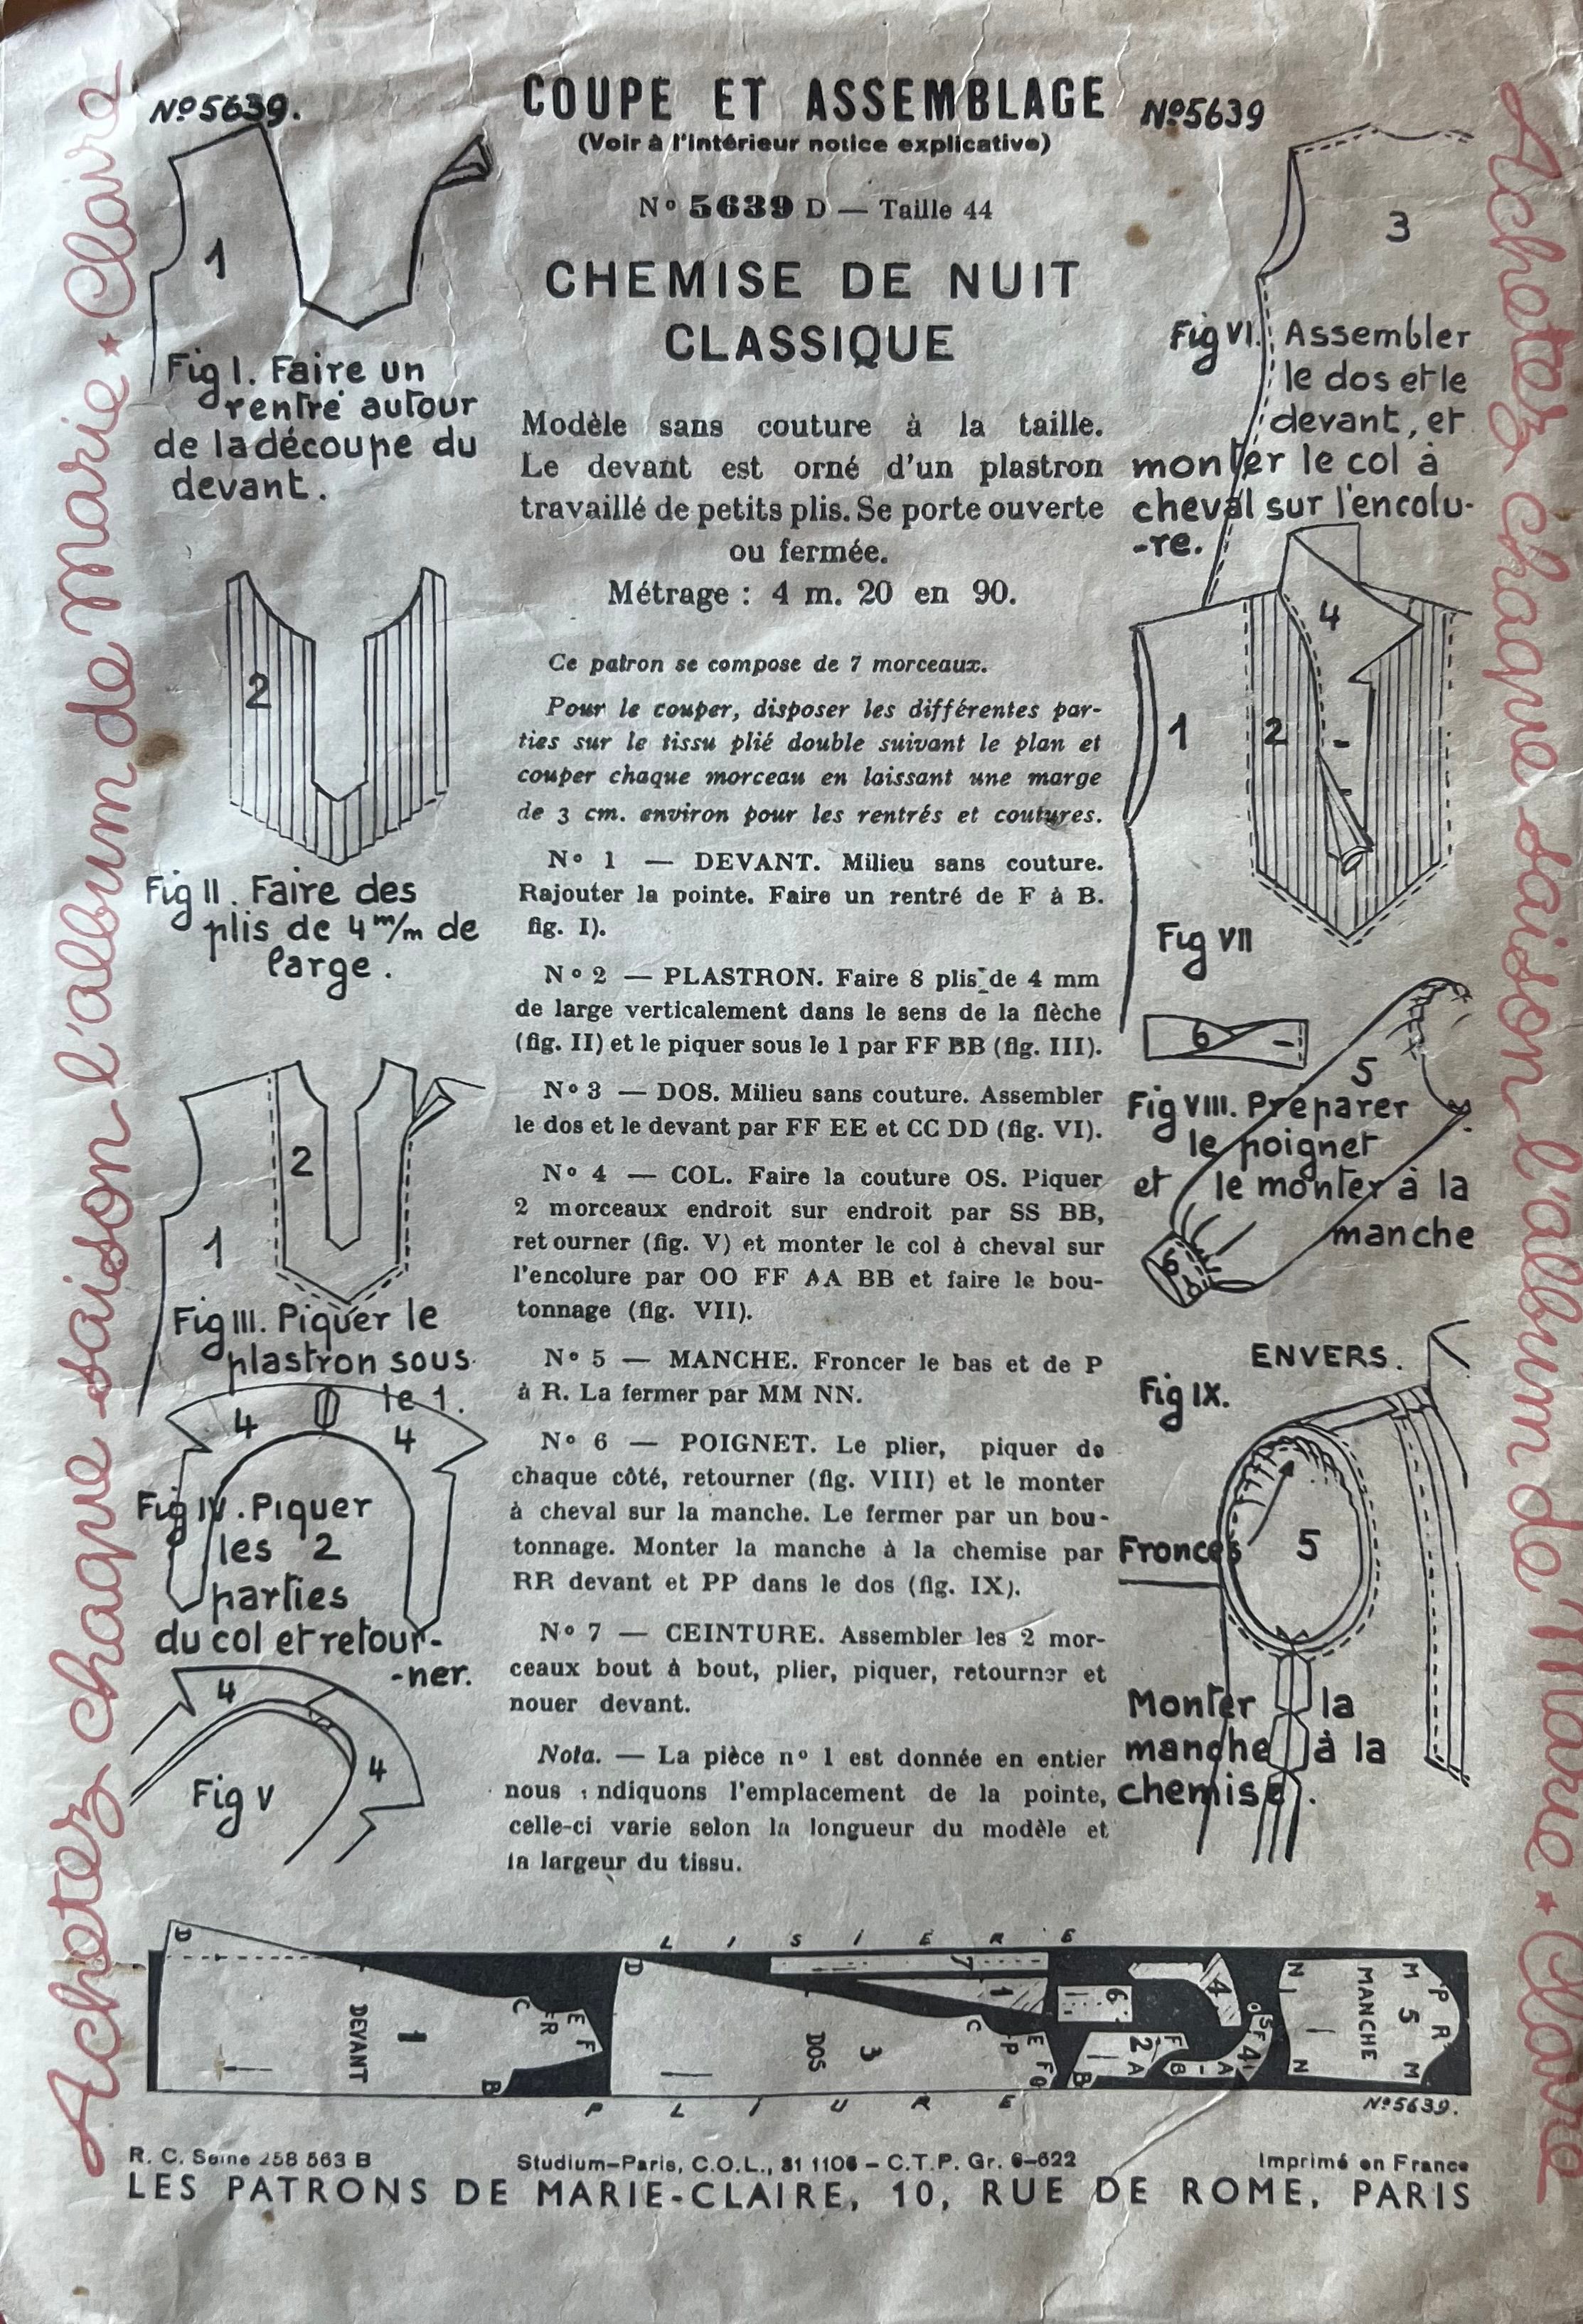 COUPE ET ASSEMBLAGE
(Voir à l'intérieur notice explicative)
Nº 5639 D — Taille 44
CHEMISE DE NUIT
CLASSIQUE
Modèle sans couture à la taille.
Le devant est orné d'un plastron
travaillé de petits plis. Se porte ouverte
ou fermée.
Métrage : 4 m. 20 en 90.
Ce patron se compose de 7 morceaux.
Pour le couper, disposer les différentes par-
ties sur le tissu plié double suivant le plan et
couper chaque morceau en laissant une marge
de 3 cm. environ pour les rentrés et coutures.
Nº 1 — DEVANT. Milieu sans couture.
Rajouter la pointe. Faire un rentré de F à B.
fig. I).
Nº 2 — PLASTRON. Faire 8 plis de 4 mm
de large verticalement dans le sens de la flèche
(fig. II) et le piquer sous le 1 par FF BB (fig. III).
Nº 3 — DOS. Milieu sans couture. Assembler
le dos et le devant par FF EE et CC DD (fig. VI).
Nº 4 — COL. Faire la couture OS. Piquer
2 morceaux endroit sur endroit par SS BB,
retourner (fig. V) et monter le col à cheval sur
l'encolure par OO FF AA BB et faire le bou-
tonnage (fig. VII).
Nº 5 — MANCHE. Froncer le bas et de P
à R. La fermer par MM NN.
Nº 6 — POIGNET. Le plier, piquer de
chaque côté, retourner (fig. VIII) et le monter
à cheval sur la manche. Le fermer par un bou-
tonnage. Monter la manche à la chemise par
RR devant et PP dans le dos (fig. IX).
Nº 7 — CEINTURE. Assembler les 2 mor-
ceaux bout à bout, plier, piquer, retourner et
nouer devant.
Nota. — La pièce nº 1 est donnée en entier
nous indiquons l'emplacement de la pointe,
celle-ci varie selon la longueur du modèle et
la largeur du tissu.
Nº 5639.
1
Fig I. Faire un
rentré autour
de la découpe du
devant.
2
Fig II. Faire des
plis de 4 m/m de
large.
2
1
Fig III. Piquer le
plastron sous
le 1.
4
4
Fig IV. Piquer
les 2
parties
du col et retour-
-ner.
4
4
Fig V
Nº 5639
3
Fig VI. Assembler
le dos et le
devant, et
monter le col à
cheval sur l'encolu-
-re.
4
1
2
Fig VII
6
5
Fig VIII. Préparer
le poignet
et le monter à la
manche
6
ENVERS.
Fig IX.
Fronces
5
Monter la
manche à la
chemise.
LISIÈRE
D
DEVANT
1
C
R
E
F
B
D
DOS
3
C
P
E
F
O
7
1
6
2
F
A
B
4
B
A
4
F
S
O
N
N
MANCHE
5
M
M
P
R
PLIURE
Nº 5639.
R. C. Seine 258 563 B
Studium-Paris, C.O.L., 31 1106 - C.T.P. Gr. 6-622
Imprimé en France
LES PATRONS DE MARIE-CLAIRE, 10, RUE DE ROME, PARIS
Achetez chaque saison l'album de Marie★Claire
Achetez chaque saison l'album de Marie★Claire